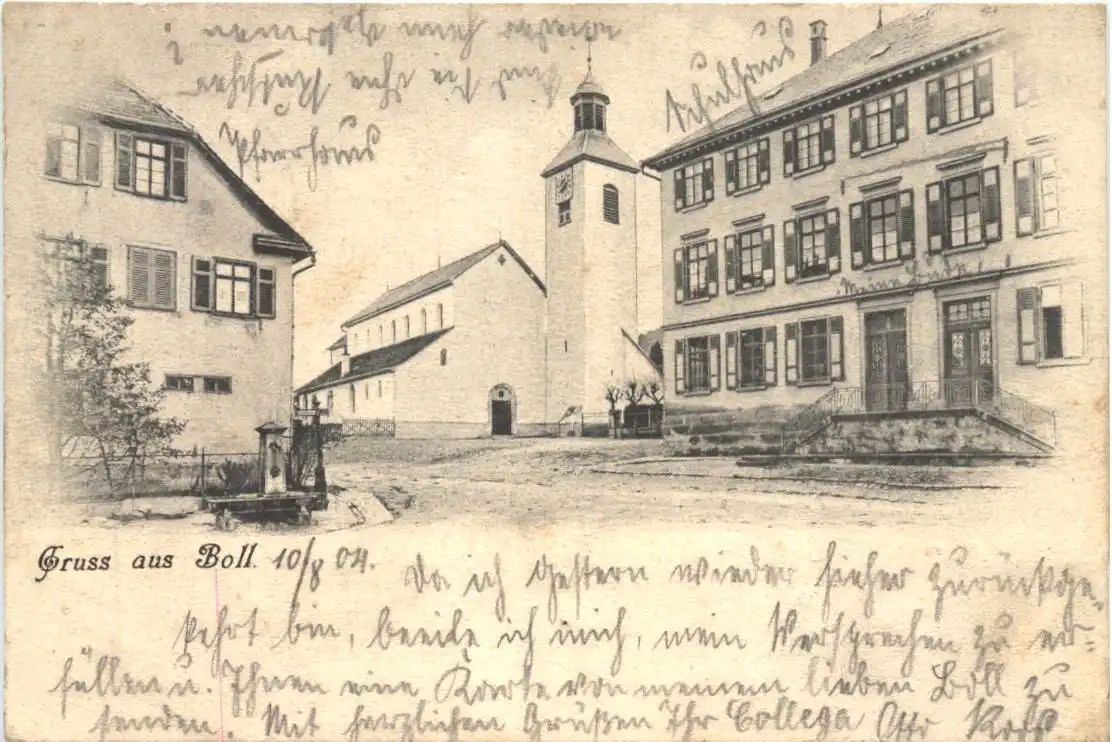 Pfarrhaus
Schulhaus
Gruss aus Boll. 10/8 04.
Da ich gestern wieder hieher zurückge-
kehrt bin, beeile ich mich, mein Versprechen zu er-
füllen u. Ihnen eine Karte von meinem lieben Boll zu
senden. Mit herzlichen Grüßen Ihr Collega Otto